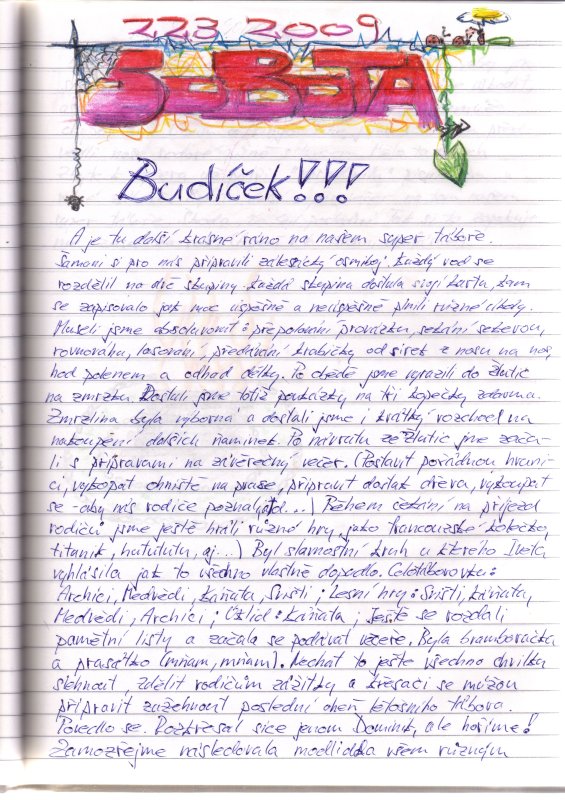 22 8 2009
SOBOTA
Budíček!!!
A je tu další krásné ráno na našem super táboře.
Šamani si pro nás připravili zálesácký osmiboj. Každý rod se
rozdělil na dvě skupiny. Každá skupina dostala svoji kartu, kam
se zapisovalo jak moc úspěšně a neúspěšně plnili různé úkoly.
Museli jsme absolvovat: přepalování provázku, sekání sekerou,
rovnováha, lasování, předávání krabičky od sirek z nosu na nos,
hod polenem a odhad délky. Po obědě jsme vyrazili do Žlutic
na zmrzku. Dostali jsme totiž poukázky na tři kopečky zdarma.
Zmrzlina byla výborná a dostali jsme i krátký rozchod na
nakoupení dalších ňaminek. Po návratu ze Žlutic jsme zača-
li s přípravami na závěrečný večer. (Postavit pořádnou hrani-
ci, vykopat ohniště na prase, připravit dostak dřeva, vykoupat
se - aby nás rodiče poznali, atd...) Během čekání na příjezd
rodičů jsme ještě hráli různé hry, jako francouzské kolečko,
titanik, hutututu, aj...) Byl slavnostní kruh u kterého Iveta,
vyhlásila jak to všechno vlastně dopadlo. Celotáborovka:
Archíci, Medvědi, Káňata, Svišti; Lesní hry: Svišti, Káňata,
Medvědi, Archíci; Úklid: Káňata; Ještě se rozdali
pamětní listy a začala se podávat večeře. Byla bramboračka
a prasátko (mňam, mňam). Nechat to ještě všechno chvilku
slehnout, sdělit rodičům zážitky a křesači se můžou
připravit zažehnout poslední oheň letošního tábora.
Povedlo se. Rozkřesal sice jenom Dominik, ale hoříme!
Samozřejmě následovala modlidba všem různým